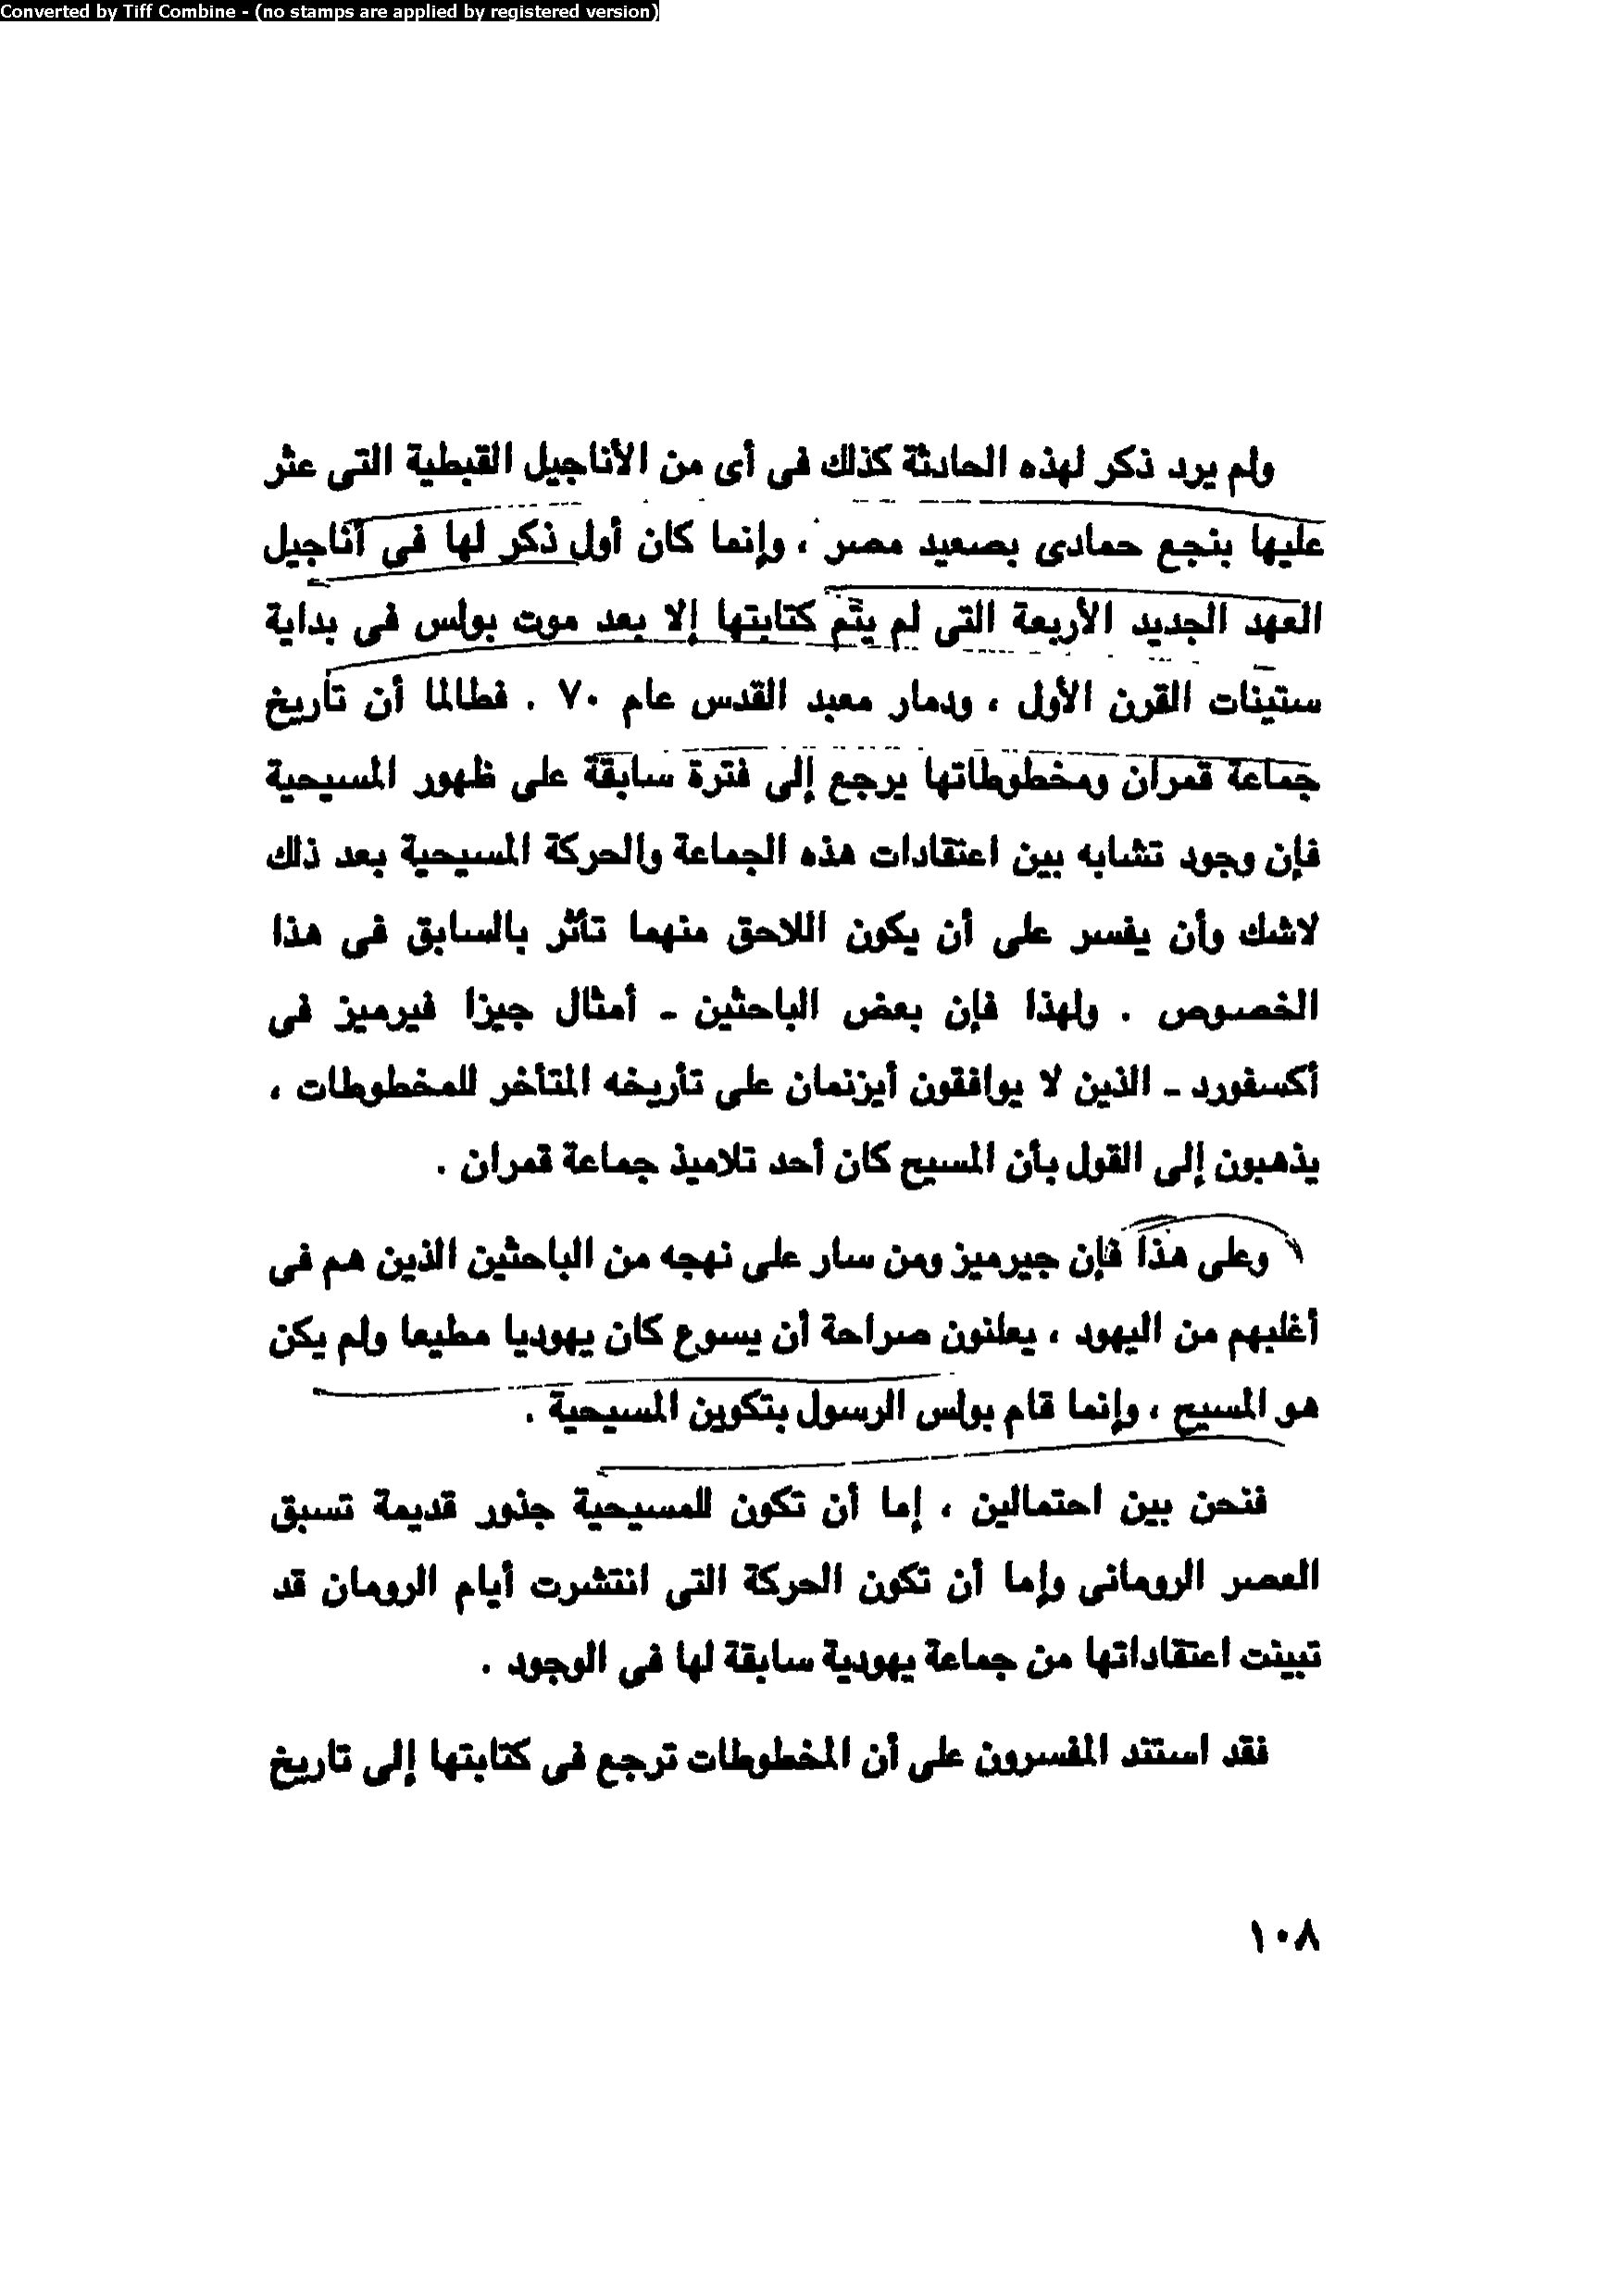 Converted by Tiff Combine - (no stamps are applied by registered version)
ولم يرد ذكر لهذه الحادثة كذلك فى أى من الأناجيل القبطية التى عثر
عليها بنجع حمادى بصعيد مصر ، وإنما كان أول ذكر لها فى أناجيل
العهد الجديد الأربعة التى لم يتم كتابتها إلا بعد موت بولس فى بداية
ستينات القرن الأول ، ودمار معبد القدس عام ٧٠ . فطالما أن تاريخ
جماعة قمران ومخطوطاتها يرجع إلى فترة سابقة على ظهور المسيحية
فإن وجود تشابه بين اعتقادات هذه الجماعة والحركة المسيحية بعد ذلك
لاشك وأن يفسر على أن يكون اللاحق منهما تأثر بالسابق فى هذا
الخصوص . ولهذا فإن بعض الباحثين ـ أمثال جيزا فيرميز فى
أكسفورد ـ الذين لا يوافقون أيزنمان على تأريخه المتأخر للمخطوطات ،
يذهبون إلى القول بأن المسيح كان أحد تلاميذ جماعة قمران .
وعلى هذا فإن جيرميز ومن سار على نهجه من الباحثين الذين هم فى
أغلبهم من اليهود ، يعلنون صراحة أن يسوع كان يهوديا مطيعا ولم يكن
هو المسيح ، وإنما قام بولس الرسول بتكوين المسيحية .
فنحن بين احتمالين ، إما أن تكون للمسيحية جذور قديمة تسبق
العصر الرومانى وإما أن تكون الحركة التى انتشرت أيام الرومان قد
تبينت اعتقاداتها من جماعة يهودية سابقة لها فى الوجود .
فقد استند المفسرون على أن المخطوطات ترجع فى كتابتها إلى تاريخ
١٠٨